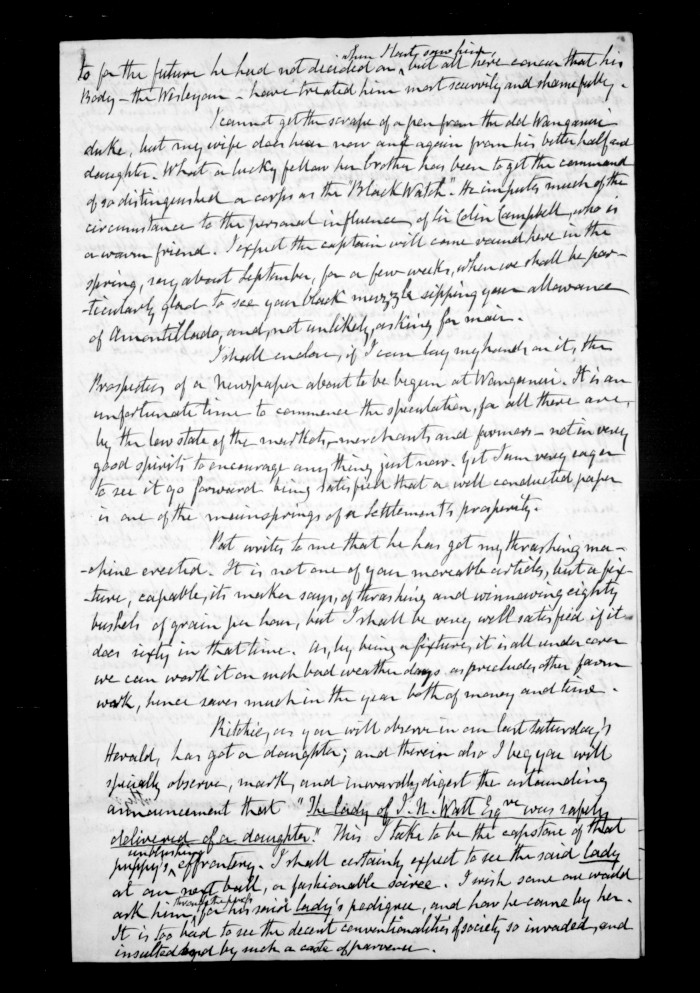 when I last saw him,
to for the future he had not decided on, but all here concur that his
Body – the Wesleyan – have treated him most scurvily and shamefully.
I cannot get the scrape of a pen from the old Wanganui
duke, but my wife does hear now and again from his better half and
daughter. What a lucky fellow her brother has been to get the command
of so distinguished a corps as the "Black Watch". He imputes much of the
circumstance to the personal influence of Sir Colin Campbell, who is
a warm friend. I expect the captain will come round here in the
spring, say about September, for a few weeks, when we shall be par-
-ticularly glad to see your black muzzle sipping your allowance
of Amontillado, and, not unlikely, asking for mair.
I shall enclose, if I can lay my hands on it, the
Prospectus of a newspaper about to be begun at Wanganui. It is an
unfortunate time to commence the speculation, for all there are,
by the low state of the markets – merchants and farmers – not in very
good spirits to encourage any thing just now. Yet I am very eager
to see it go forward being satisfied that a well conducted paper
is one of the mainsprings of a Settlement's prosperity.
Pat writes to me that he has got my thrashing ma-
-chine erected. It is not one of your moveable articles, but a fix-
-ture, capable, its maker says, of thrashing and winnowing eighty
bushels of grain per hour, but I shall be very well satisfied if it
does sixty in that time. As, by being a fixture, it is all under cover
we can work it on such bad weather days as precludes other farm
work, hence saves much in the year both of money and time.
Ritchie, as you will observe in our last Saturday's
Herald, has got a daughter; and therein also I beg you will
specially observe, mark, and inwardly digest the astounding
announcement that "The lady of I. N. Watt Esqre was safely
delivered of a daughter." This I take to be the capstone of that
unblushing
puppy's effrontery. I shall certainly expect to see the said lady
at our next ball, or fashionable soiree. I wish some one would
ask him, for his said lady's pedigree, and how he came by her.
It is too bad to see the decent conventionalities of society so invaded, and
insulted by such a parvenu.